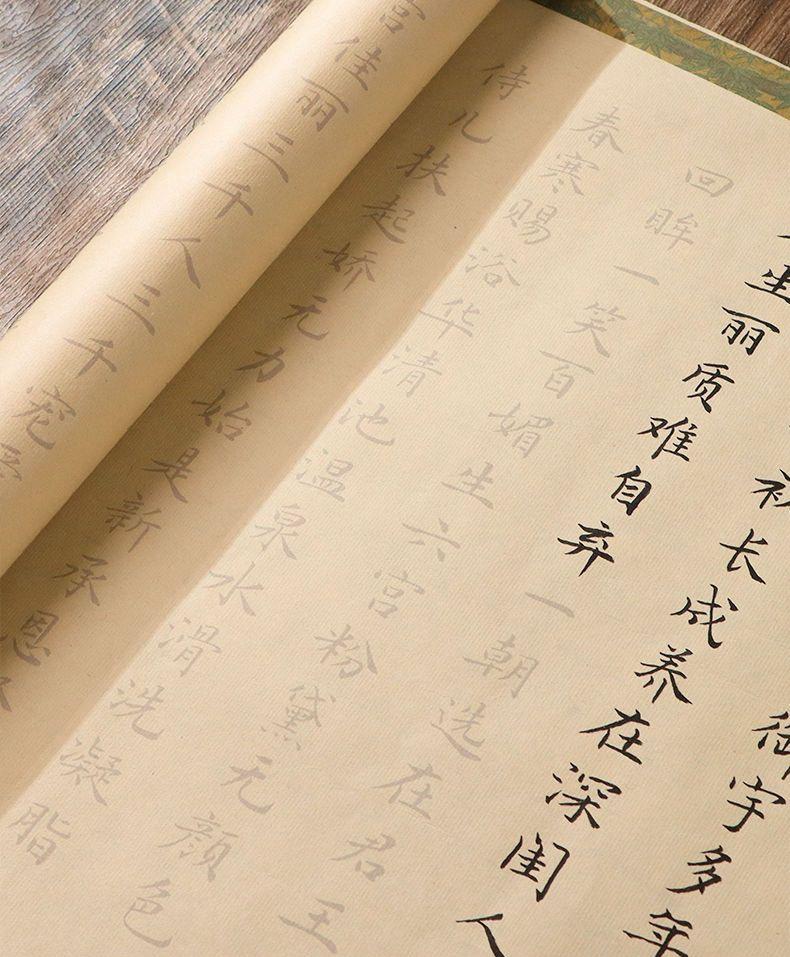 御宇多年
初长成养在深闺人
生丽质难自弃一朝选在君王
回眸一笑百媚生六宫粉黛无颜色
春寒赐浴华清池温泉水滑洗凝脂
侍儿扶起娇无力始是新承恩
宫佳丽三千人三千宠